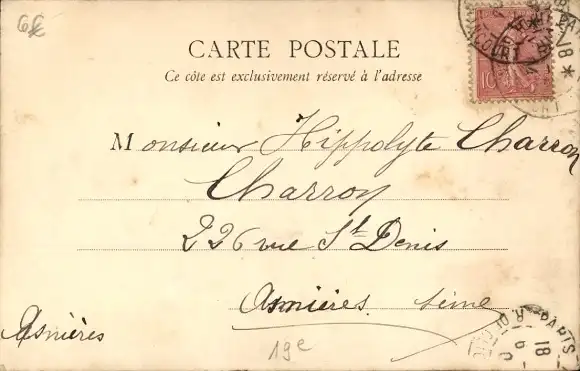 6€
CARTE POSTALE
Ce côte est exclusivement réservé à l'adresse
10
Monsieur Hippolyte Charron
Charron
226 rue St Denis
Asnières. Seine
Asnières
19e
PARIS 18